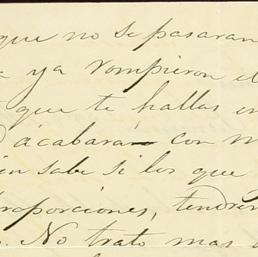 que no se pasaran
ya rompieron el
que te hallas en
acabará con m
en sabe si los que
proporciones, tendrem
No trato mas